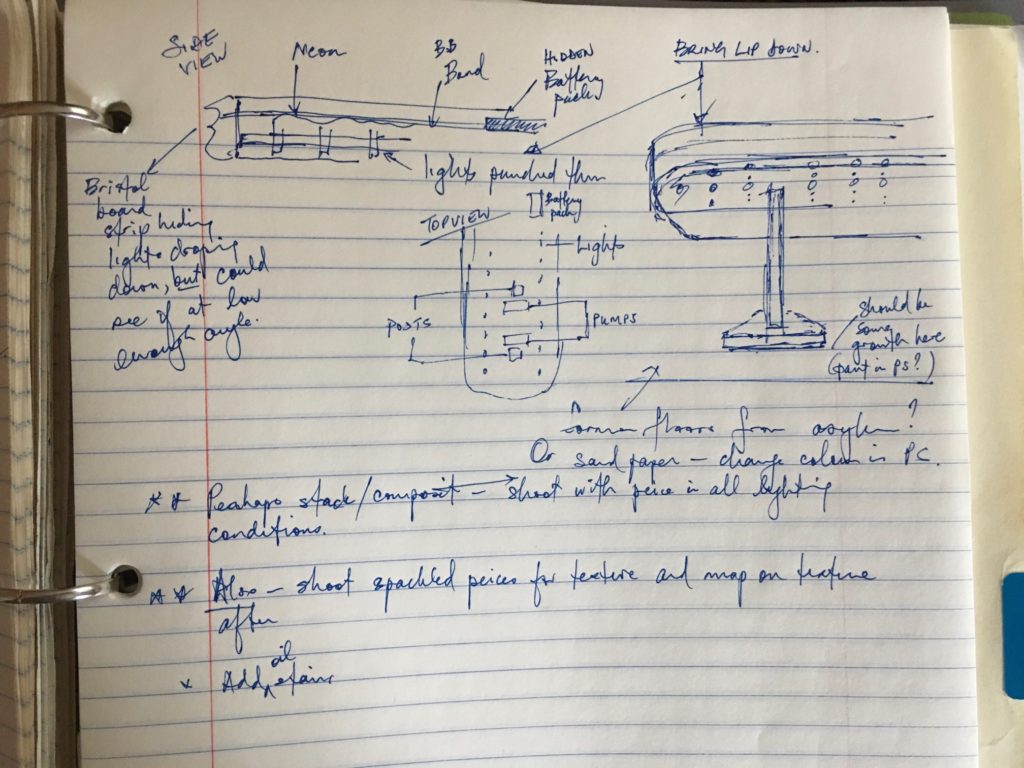 SIDE
VIEW
Neon
BB
Band
HIDDEN
Battery
pack
BRING LIP DOWN.
lights punched thru
Bristol
board
strip hiding
lights
down, but could
see if at low
enough angle.
TOPVIEW
Battery
pack
Lights
POSTS
PUMPS
should be
some
growth here
(paint in PS?)
floors from asylum?
Or sand paper – change colour in PC.
** Perhaps stack/composit – shoot with peice in all lighting
conditions.
** Also – shoot spackled peices for texture and map on texture
after
oil
* Add stains